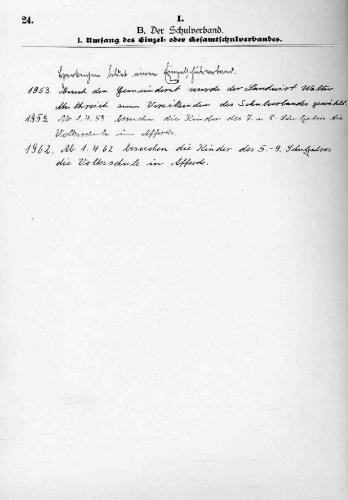 24.
I.
B. Der Schulverband.
1. Umfang des Einzel- oder Gesamtschulverbandes.
bildet einen Einzelschulverband.
1953. Durch den Gemeinderat wurde der Landwirt Walter
zum Vorsitzenden des Schulverbandes gewählt.
1959. Ab 1.4.59 besuchen die Kinder des 7. u. 8. Schuljahres die
Volksschule in Afferde.
1962. Ab 1.4.62 besuchen die Kinder des 5.-9. Schuljahres
die Volksschule in Afferde.